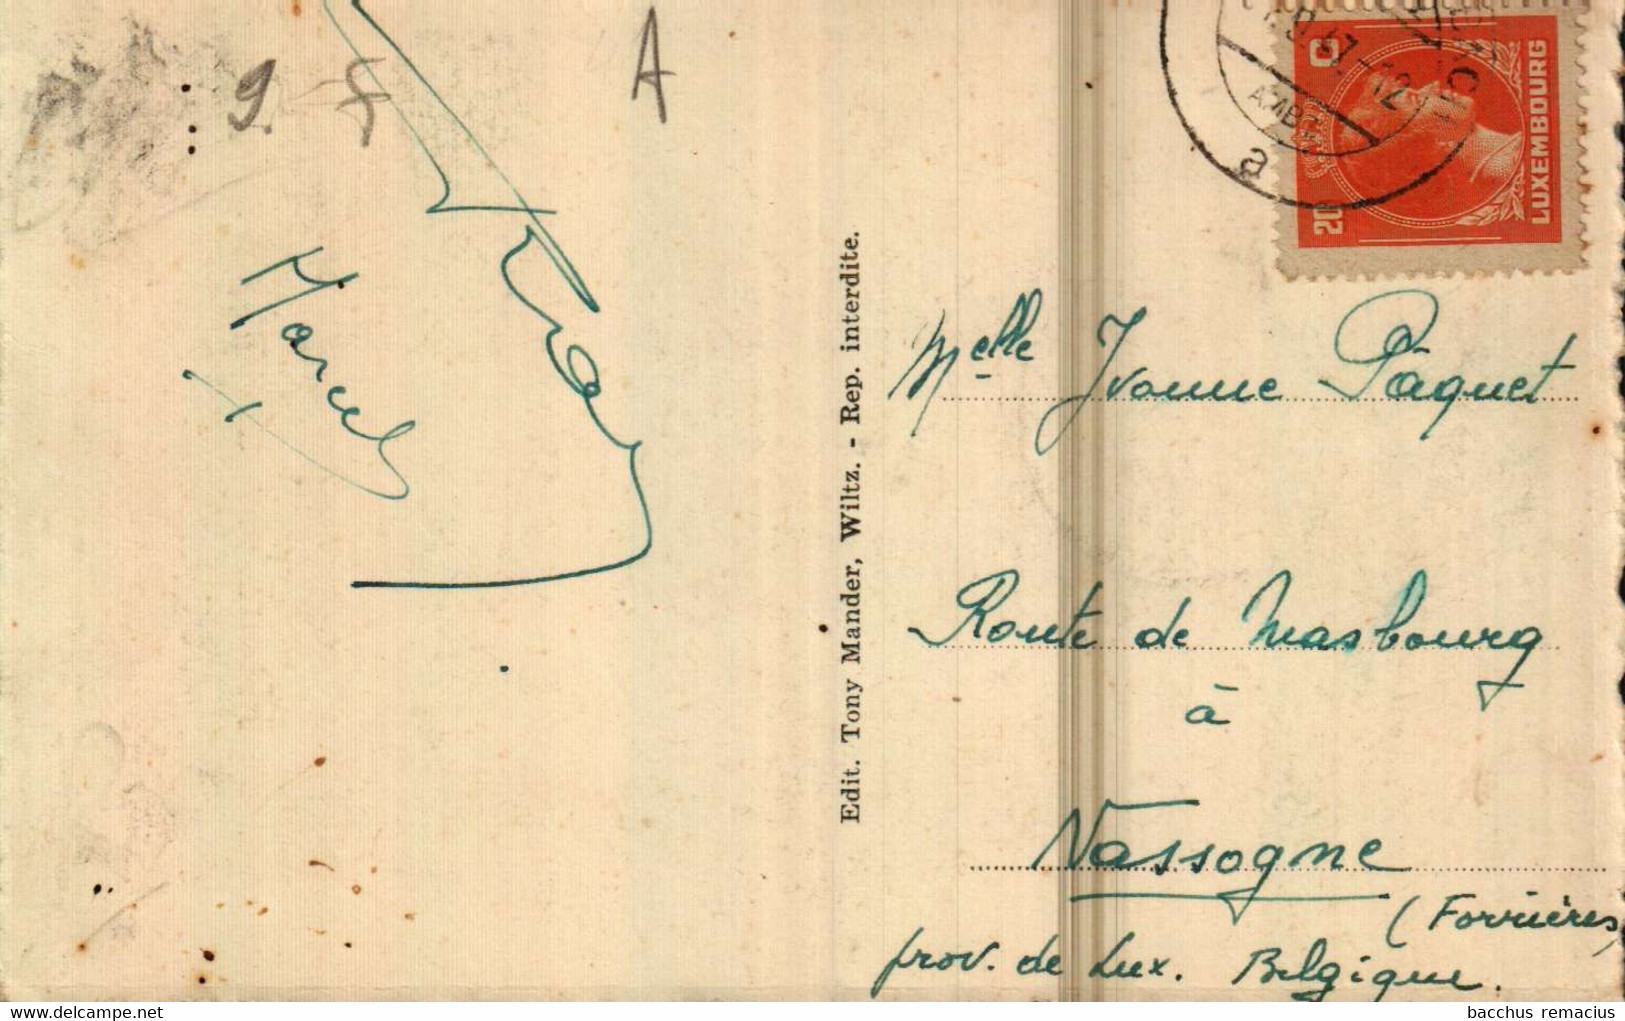 9. F A
Marcel
Edit. Tony Mander, Wiltz. - Rep. interdite.
LUXEMBOURG
20 C
a
Melle Yvonne Pâquet
Route de Masbourg
à
Nassogne
(Forrières)
prov. de Lux. Belgique.
delcampe.net
bacchus remacius